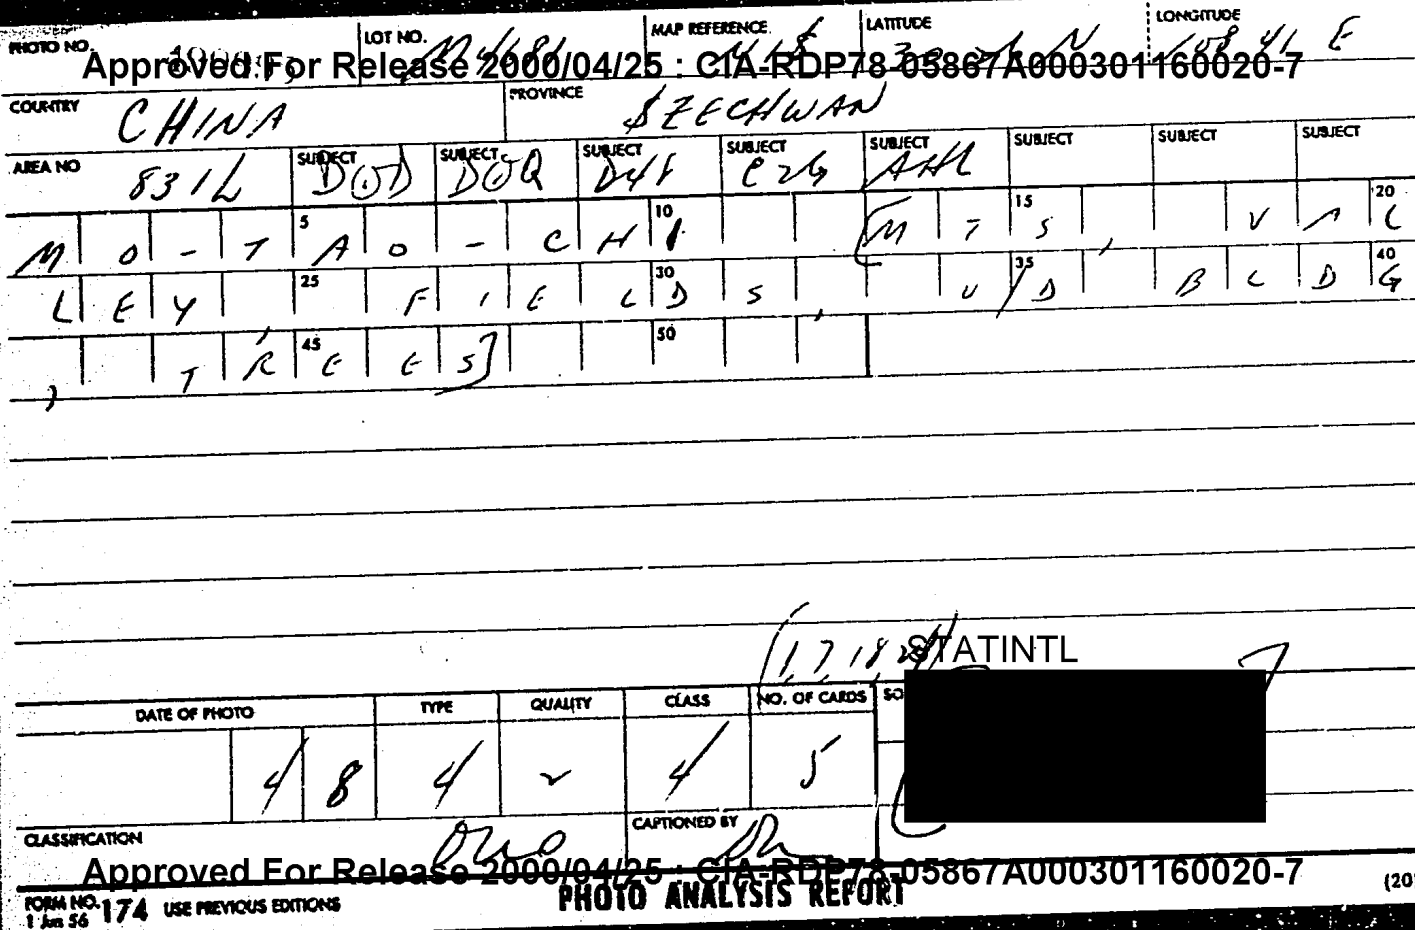 PHOTO NO. LOT NO. MAP REFERENCE LATITUDE LONGITUDE
N 108 41 E
Approved For Release 2000/04/25 : CIA-RDP78-05867A000301160020-7
COUNTRY CHINA PROVINCE SZECHWAN
AREA NO 831L SUBJECT DOD SUBJECT DOQ SUBJECT D48 SUBJECT C26 SUBJECT AHL SUBJECT SUBJECT SUBJECT
5 10 15 20
MO-TAO-CHI (MTS, VAL
25 30 35 40
LEY, FIELDS, U/D BLDG
45 50
, TREES)
(1, 7, 18,
STATINTL
DATE OF PHOTO TYPE QUALITY CLASS NO. OF CARDS SO
4 8 4 4 5
CLASSIFICATION CAPTIONED BY
Approved For Release 2000/04/25 : CIA-RDP78-05867A000301160020-7
FORM NO. 174 USE PREVIOUS EDITIONS PHOTO ANALYSIS REPORT (20
1 Jun 56